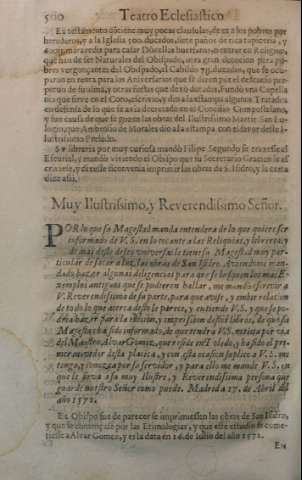 500 Teatro Eclesiastico
El testamento contiene muy pocas clausulas, dexa a los pobres por
herederos, y a la Iglesia con
para casar Donzellas huerfanas, o entrar en Religion,
que han de ser Naturales del Obispado,
bres vergonçantes del Obispado, al Cabildo
puran en renta para los Aniversarios que le dizen por el descanso per-
petuo de su alma, y otras fiestas que dexó dotadas. Fundó una Capilla
que sirve en el Coro, al cuerno, y dio a la estampa algunos Tratados
en defensa de lo que se avia decretado en el Concilio Compostelano,
y fue causa de que se gozen las obras del Ilustrissimo Martir San Eu-
logio, que Ambrosio de Morales dio a la estampa con el favor deste Ilu-
strissimo Prelado.
Su libreria por muy curiosa mandó Filipe Segundo se truxesse al
Escurial, y mandó viniendo el Obispo que su Secretario Gracian se
y desseo que tenia imprimir las obras de S. Isidro, y la carta
dize assi.
Muy Ilustrissimo, y Reverendissimo Señor.
POR lo que su Magestad manda entenderá de lo que quiere ser
informado de V. S. en lo tocante a las Reliquias, y libreria, y
de mas deste desseo universal le tiene su Magestad muy par-
ticular de sacar a luz las obras de San Isidro. Aviendome man-
dado hazer algunas diligencias para que se busquen los mas E-
xemplos antiguos que se pudieren hallar, me mandó escrivir a
V. Reverendissima de su parte, para que avise, y embie relacion
de todo lo que acerca desto le parece, y entiende V. S. y que se po-
dria hazer para la edicion, y impression deste libro, de que su
Magestad ha sido informado, de que tendrá V. S. noticia por via
del Maestro Alvar Gomez, que reside en Toledo, y ha sido el pri-
mer movedor desta platica, y con esta ocasion suplico a V. S. me
tenga, y conozca por su servidor, y para ello me mande V. S. en
que le sirva a su muy Ilustre, y Reverendissima persona que
guarde nuestro Señor como puede. Madrid a 17. de Abril del
año 1572.
El Obispo fue de parecer se imprimiessen las obras de San Isidro,
y que se començasse por las Etimologias, y que este estudio se come-
tiesse a Alvar Gomez, y es la data en 16. de Iulio del año 1572.
En